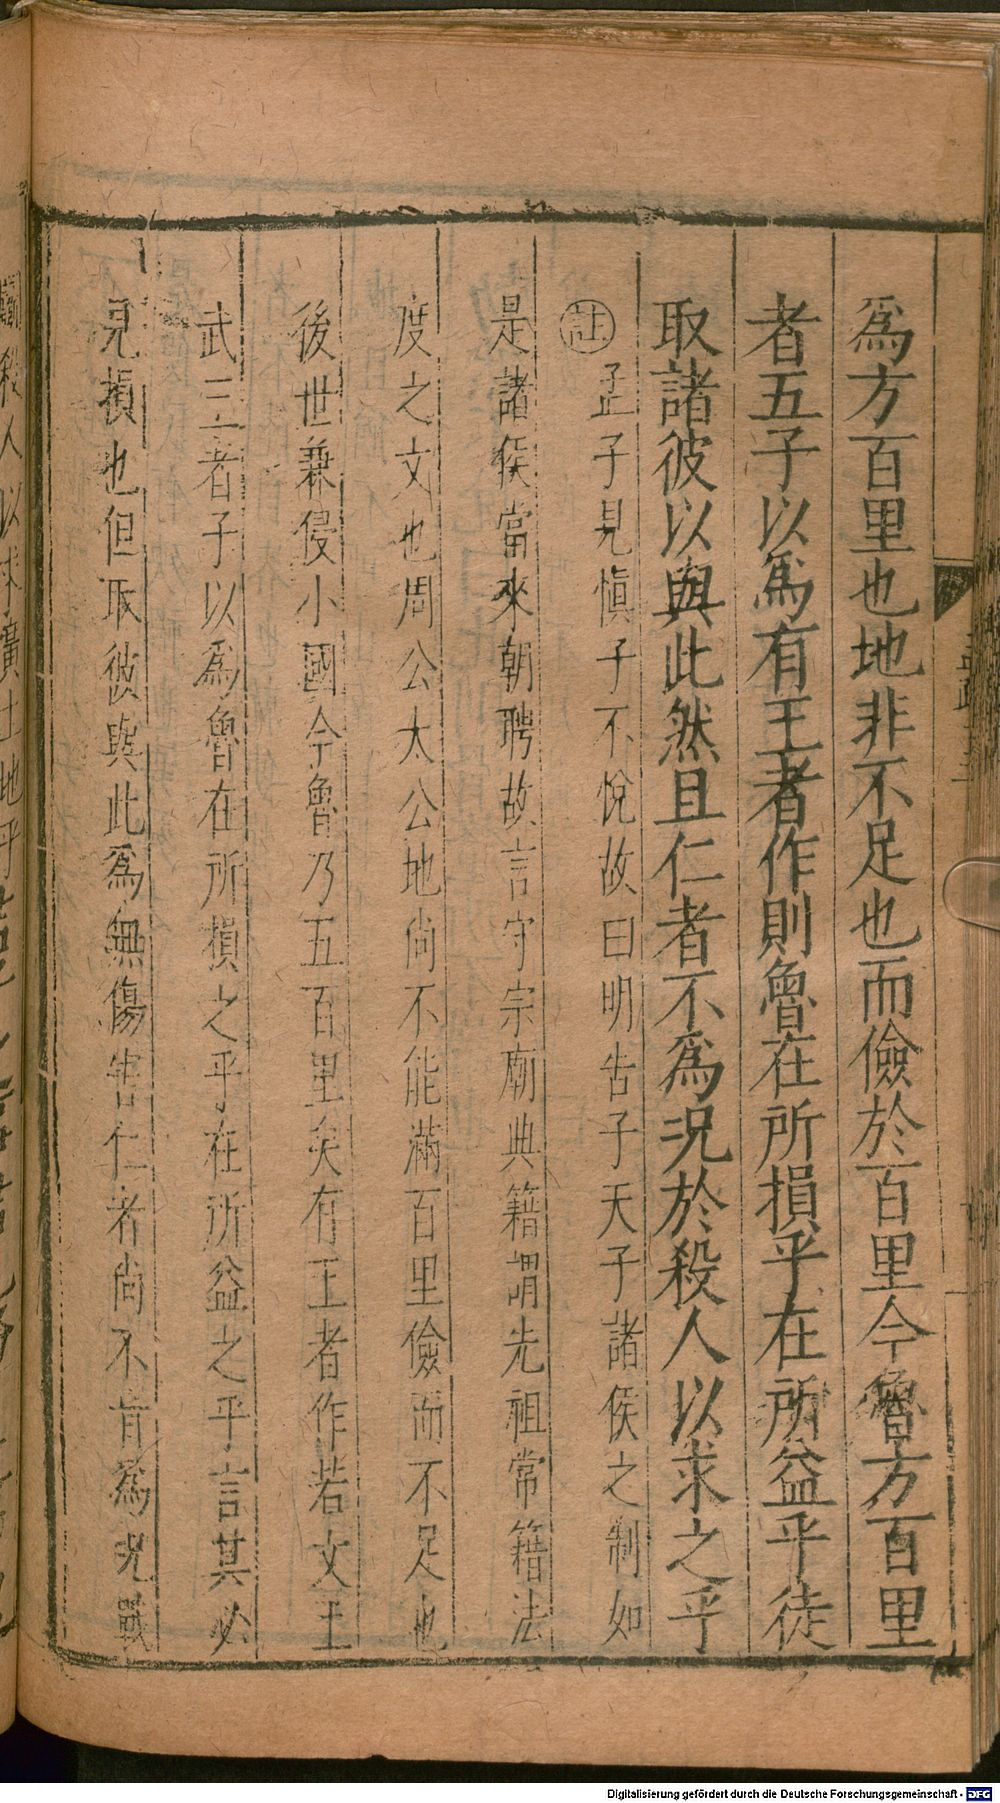 爲方百里也地非不足也而儉於百里今魯方百里
者五子以爲有王者作則魯在所損乎在所益乎徒
取諸彼以與此然且仁者不爲況於殺人以求之乎
註孟子見愼子不悅故曰明告子天子諸侯之制如
是諸侯當來朝聘故言守宗廟典籍謂先祖常籍法
度之文也周公太公地尙不能滿百里儉而不足也
後世兼侵小國今魯乃五百里矣有王者作若文王
武王者子以爲魯在所損之乎在所益之乎言其必
見損也但取彼與此爲無傷害仁者尙不肯爲況戰
殺人以求廣土地乎
Digitalisierung gefördert durch die Deutsche Forschungsgemeinschaft - DFG